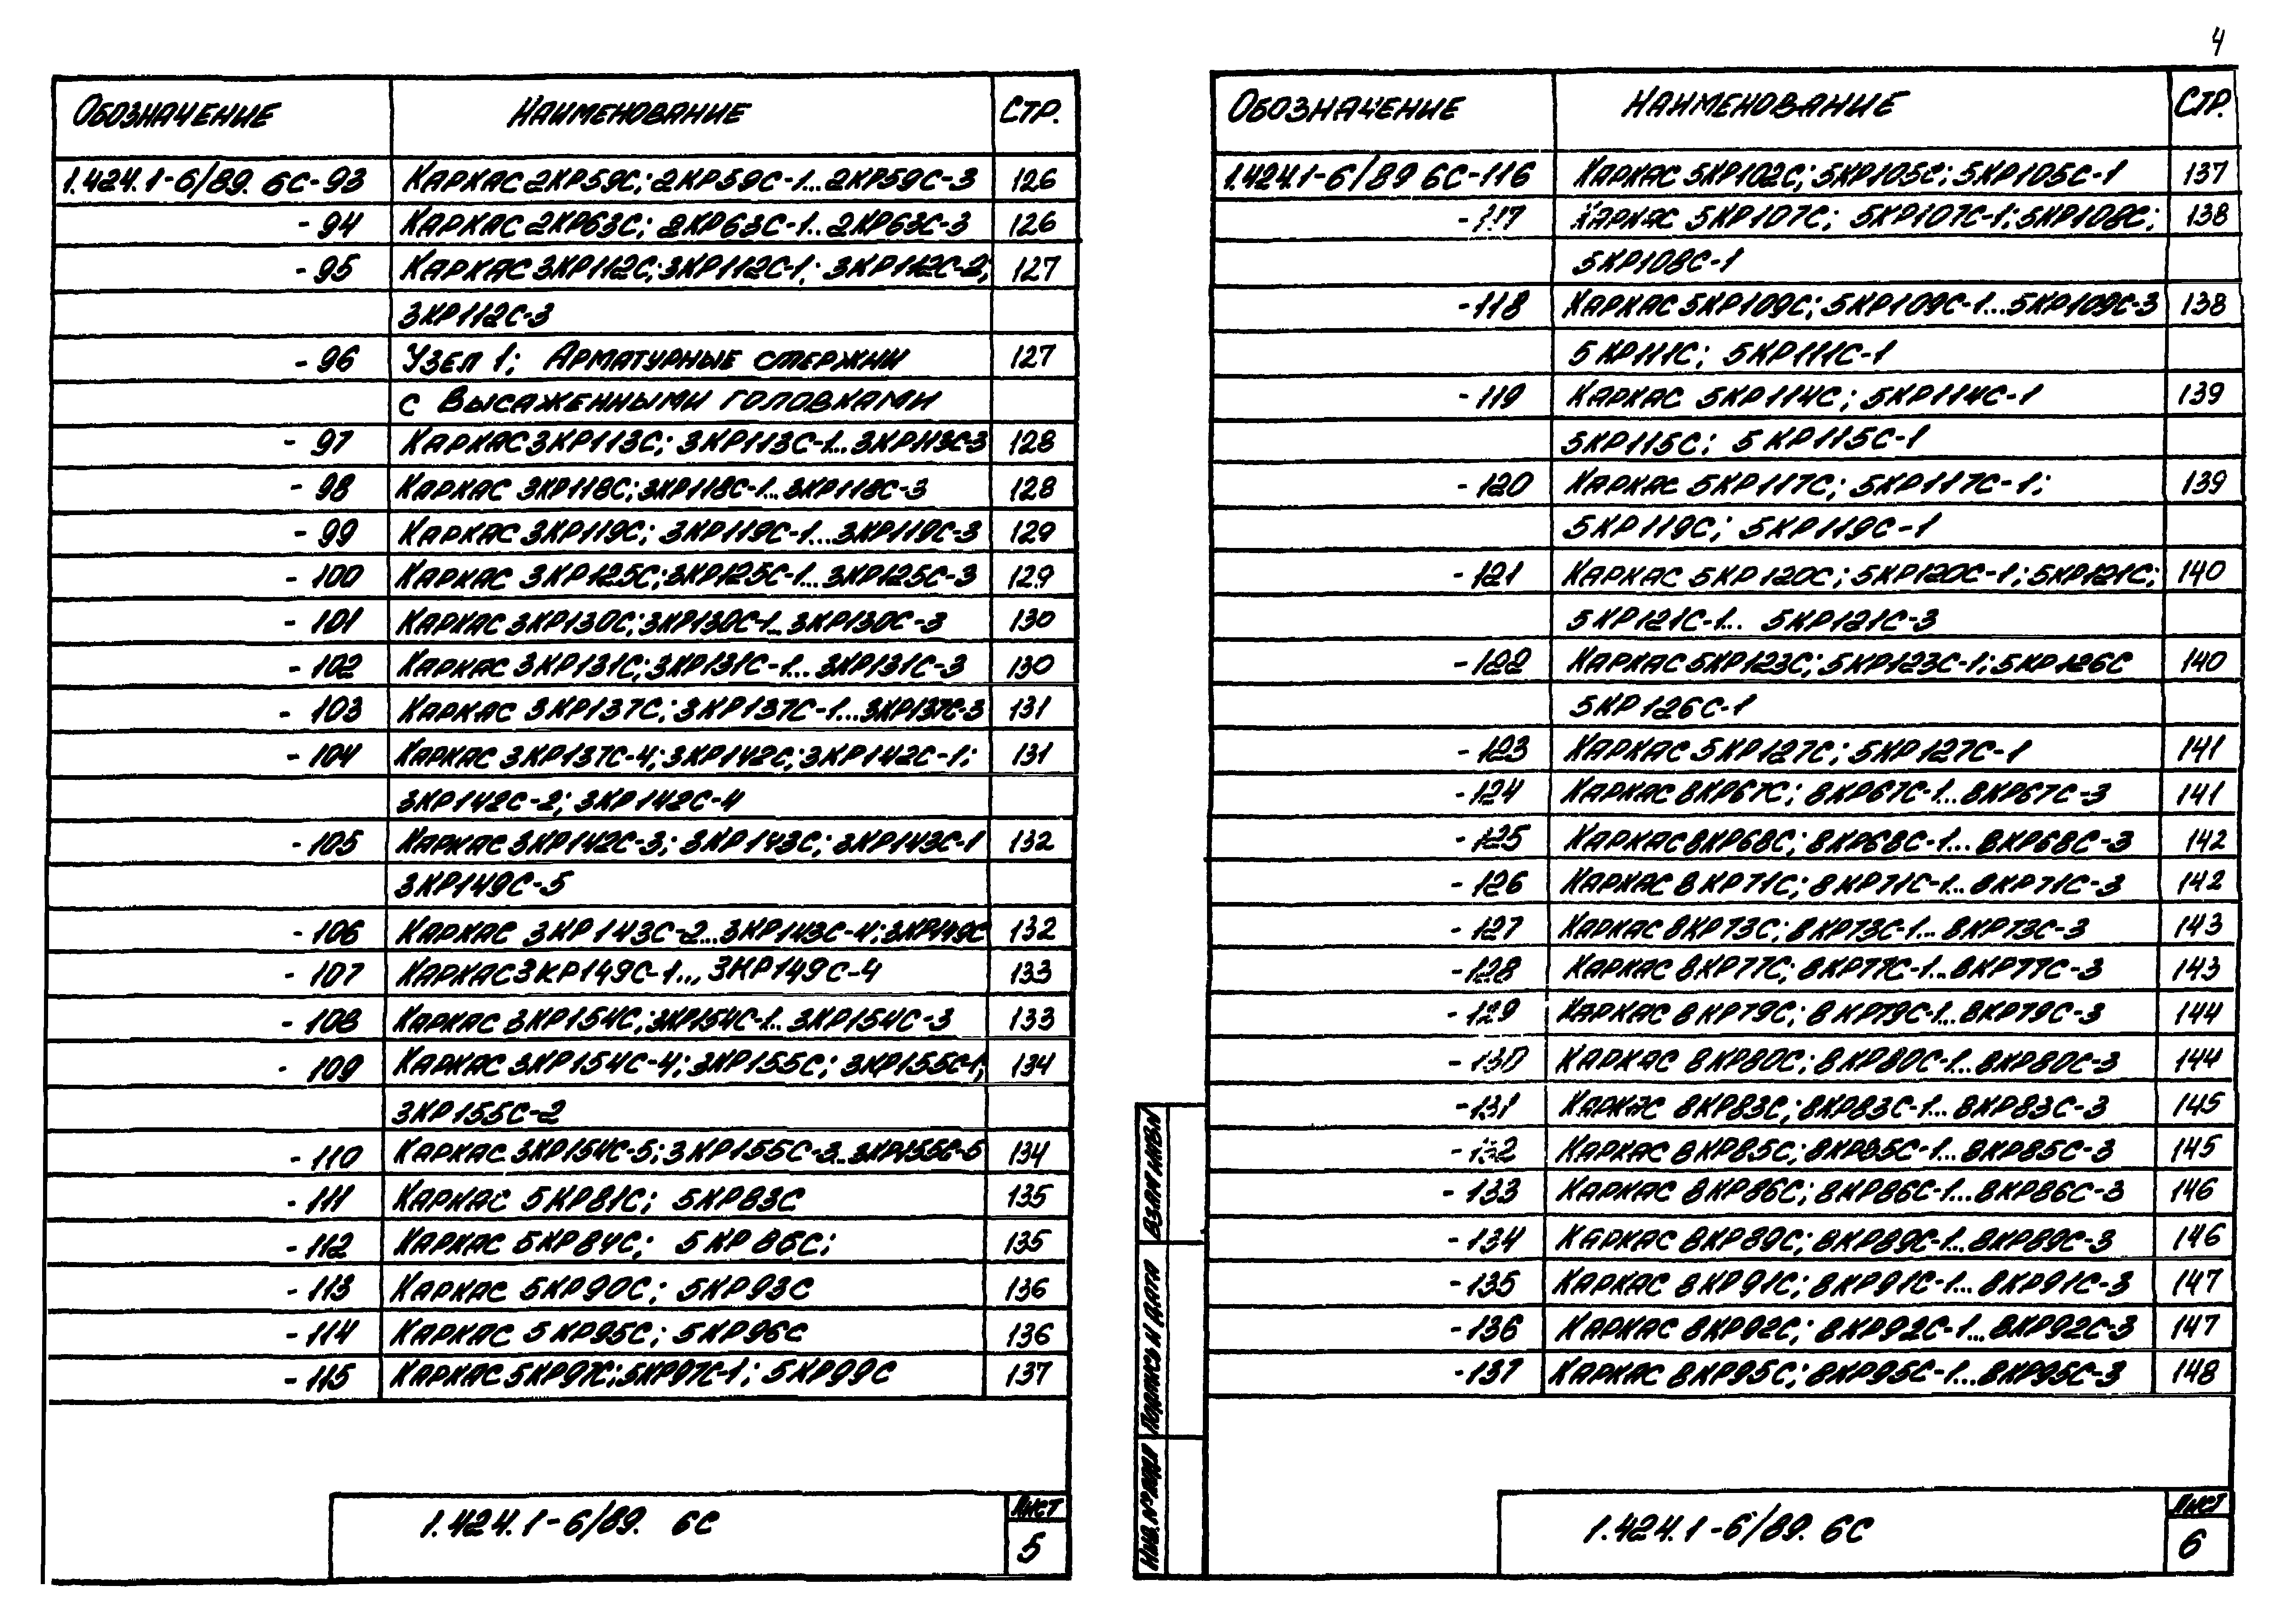 4
Обозначение Наименование Стр.
1.424.1-6/89. 6С-93 Каркас 2КР59С; 2КР59С-1... 2КР59С-3 126
-94 Каркас 2КР63С; 2КР63С-1.. 2КР63С-3 126
-95 Каркас 3КР112С; 3КР112С-1; 3КР112С-2; 127
3КР112С-3
-96 Узел 1; Арматурные стержни 127
с высаженными головками
-97 Каркас 3КР113С; 3КР113С-1... 3КР113С-3 128
-98 Каркас 3КР118С; 3КР118С-1... 3КР118С-3 128
-99 Каркас 3КР119С; 3КР119С-1... 3КР119С-3 129
-100 Каркас 3КР125С; 3КР125С-1... 3КР125С-3 129
-101 Каркас 3КР130С; 3КР130С-1... 3КР130С-3 130
-102 Каркас 3КР131С; 3КР131С-1... 3КР131С-3 130
-103 Каркас 3КР137С; 3КР137С-1... 3КР137С-3 131
-104 Каркас 3КР137С-4; 3КР142С; 3КР142С-1; 131
3КР142С-2; 3КР142С-4
-105 Каркас 3КР142С-3; 3КР143С; 3КР143С-1 132
3КР149С-5
-106 Каркас 3КР143С-2... 3КР143С-4; 3КР149С 132
-107 Каркас 3КР149С-1... 3КР149С-4 133
-108 Каркас 3КР154С; 3КР154С-1... 3КР154С-3 133
-109 Каркас 3КР154С-4; 3КР155С; 3КР155С-1; 134
3КР155С-2
-110 Каркас 3КР154С-5; 3КР155С-3... 3КР155С-5 134
-111 Каркас 5КР81С; 5КР83С 135
-112 Каркас 5КР84С; 5КР86С; 135
-113 Каркас 5КР90С; 5КР93С 136
-114 Каркас 5КР95С; 5КР96С 136
-115 Каркас 5КР97С; 5КР97С-1; 5КР99С 137
1.424.1-6/89. 6С
Лист
5
Обозначение Наименование Стр.
1.424.1-6/89 6С-116 Каркас 5КР102С; 5КР105С; 5КР105С-1 137
-117 Каркас 5КР107С; 5КР107С-1; 5КР108С; 138
5КР108С-1
-118 Каркас 5КР109С; 5КР109С-1... 5КР109С-3 138
5КР111С; 5КР111С-1
-119 Каркас 5КР114С; 5КР114С-1 139
5КР115С; 5КР115С-1
-120 Каркас 5КР117С; 5КР117С-1; 139
5КР119С; 5КР119С-1
-121 Каркас 5КР120С; 5КР120С-1; 5КР121С; 140
5КР121С-1... 5КР121С-3
-122 Каркас 5КР123С; 5КР123С-1; 5КР126С 140
5КР126С-1
-123 Каркас 5КР127С; 5КР127С-1 141
-124 Каркас 8КР67С; 8КР67С-1... 8КР67С-3 141
-125 Каркас 8КР68С; 8КР68С-1... 8КР68С-3 142
-126 Каркас 8КР71С; 8КР71С-1... 8КР71С-3 142
-127 Каркас 8КР73С; 8КР73С-1... 8КР73С-3 143
-128 Каркас 8КР77С; 8КР77С-1... 8КР77С-3 143
-129 Каркас 8КР79С; 8КР79С-1... 8КР79С-3 144
-130 Каркас 8КР80С; 8КР80С-1... 8КР80С-3 144
-131 Каркас 8КР83С; 8КР83С-1... 8КР83С-3 145
-132 Каркас 8КР85С; 8КР85С-1... 8КР85С-3 145
-133 Каркас 8КР86С; 8КР86С-1... 8КР86С-3 146
-134 Каркас 8КР89С; 8КР89С-1... 8КР89С-3 146
-135 Каркас 8КР91С; 8КР91С-1... 8КР91С-3 147
-136 Каркас 8КР92С; 8КР92С-1... 8КР92С-3 147
-137 Каркас 8КР95С; 8КР95С-1... 8КР95С-3 148
Взам инв.№
Подпись и дата
Инв.№ подл
1.424.1-6/89. 6С
Лист
6